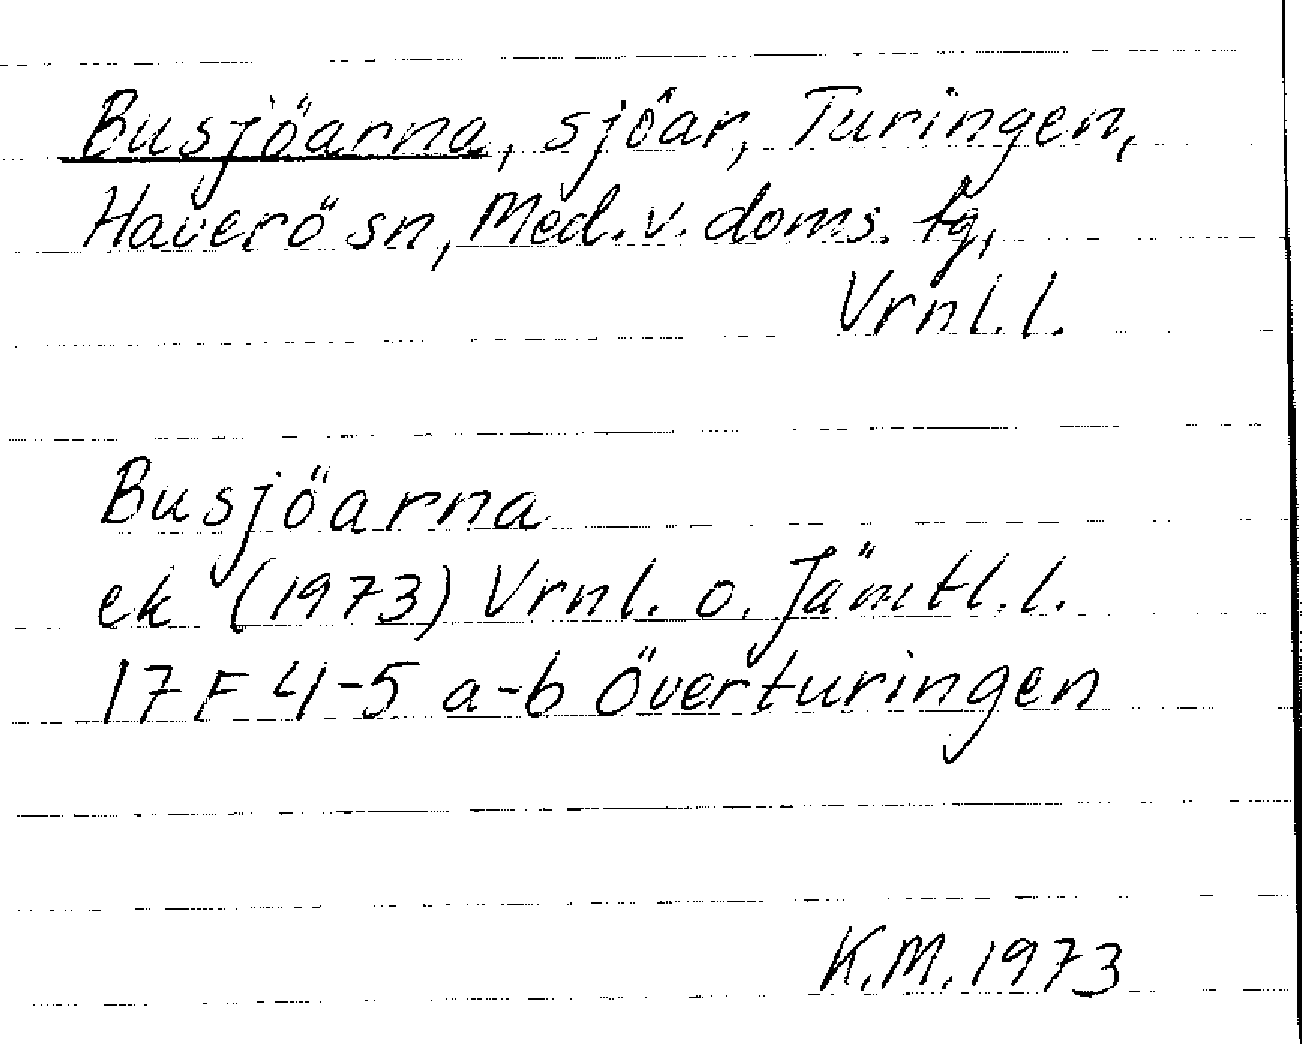 Busjöarna, sjöar, Turingen,
Haverö sn, Med. v. doms. tg,
Vrnl. l.
Busjöarna
ek (1973) Vrnl. o. Jämtl. l.
17 F 4-5 a-b Överturingen
K.M. 1973